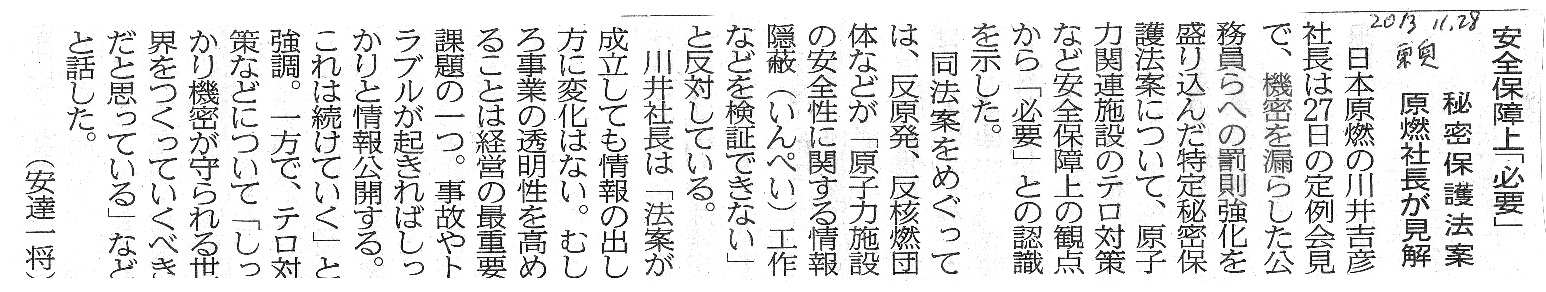 2013 11.28
東奥
安全保障上「必要」
秘密保護法案
原燃社長が見解
日本原燃の川井吉彦
社長は27日の定例会見
で、機密を漏らした公
務員らへの罰則強化を
盛り込んだ特定秘密保
護法案について、原子
力関連施設のテロ対策
など安全保障上の観点
から「必要」との認識
を示した。
同法案をめぐって
は、反原発、反核燃団
体などが「原子力施設
の安全性に関する情報
隠蔽（いんぺい）工作
などを検証できない」
と反対している。
川井社長は「法案が
成立しても情報の出し
方に変化はない。むし
ろ事業の透明性を高め
ることは経営の最重要
課題の一つ。事故やト
ラブルが起きればしっ
かりと情報公開する。
これは続けていく」と
強調。一方で、テロ対
策などについて「しっ
かり機密が守られる世
界をつくっていくべき
だと思っている」など
と話した。
（安達一将）